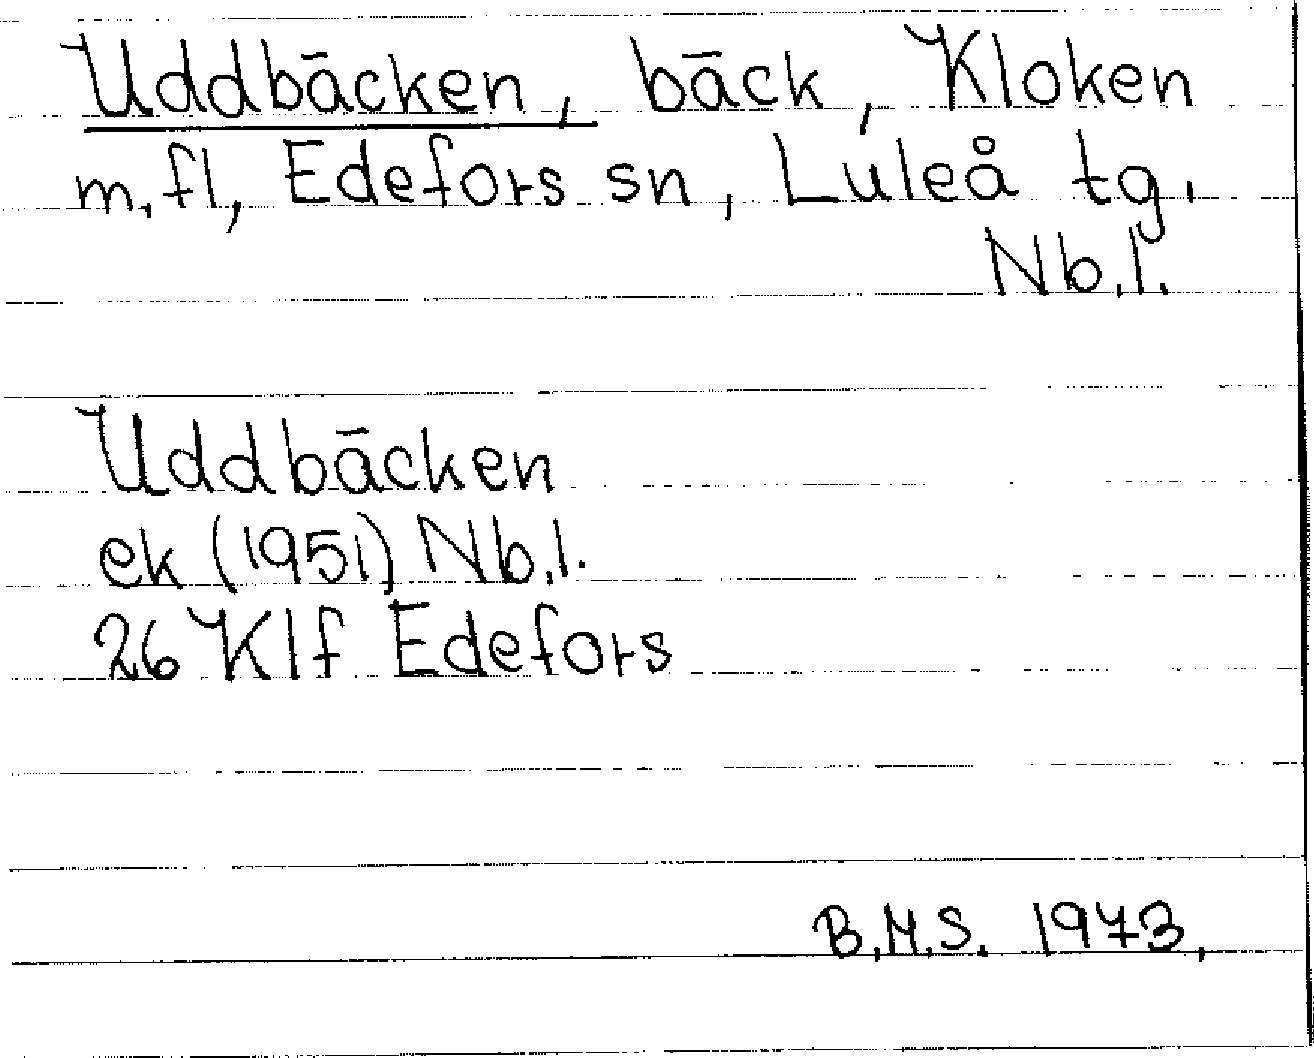 Uddbäcken, bäck, Kloken
m.fl, Edefors sn, Luleå tg.
Nb.l.
Uddbäcken
ek (1951) Nb.l.
26 Klf Edefors
B.M.S. 1973.